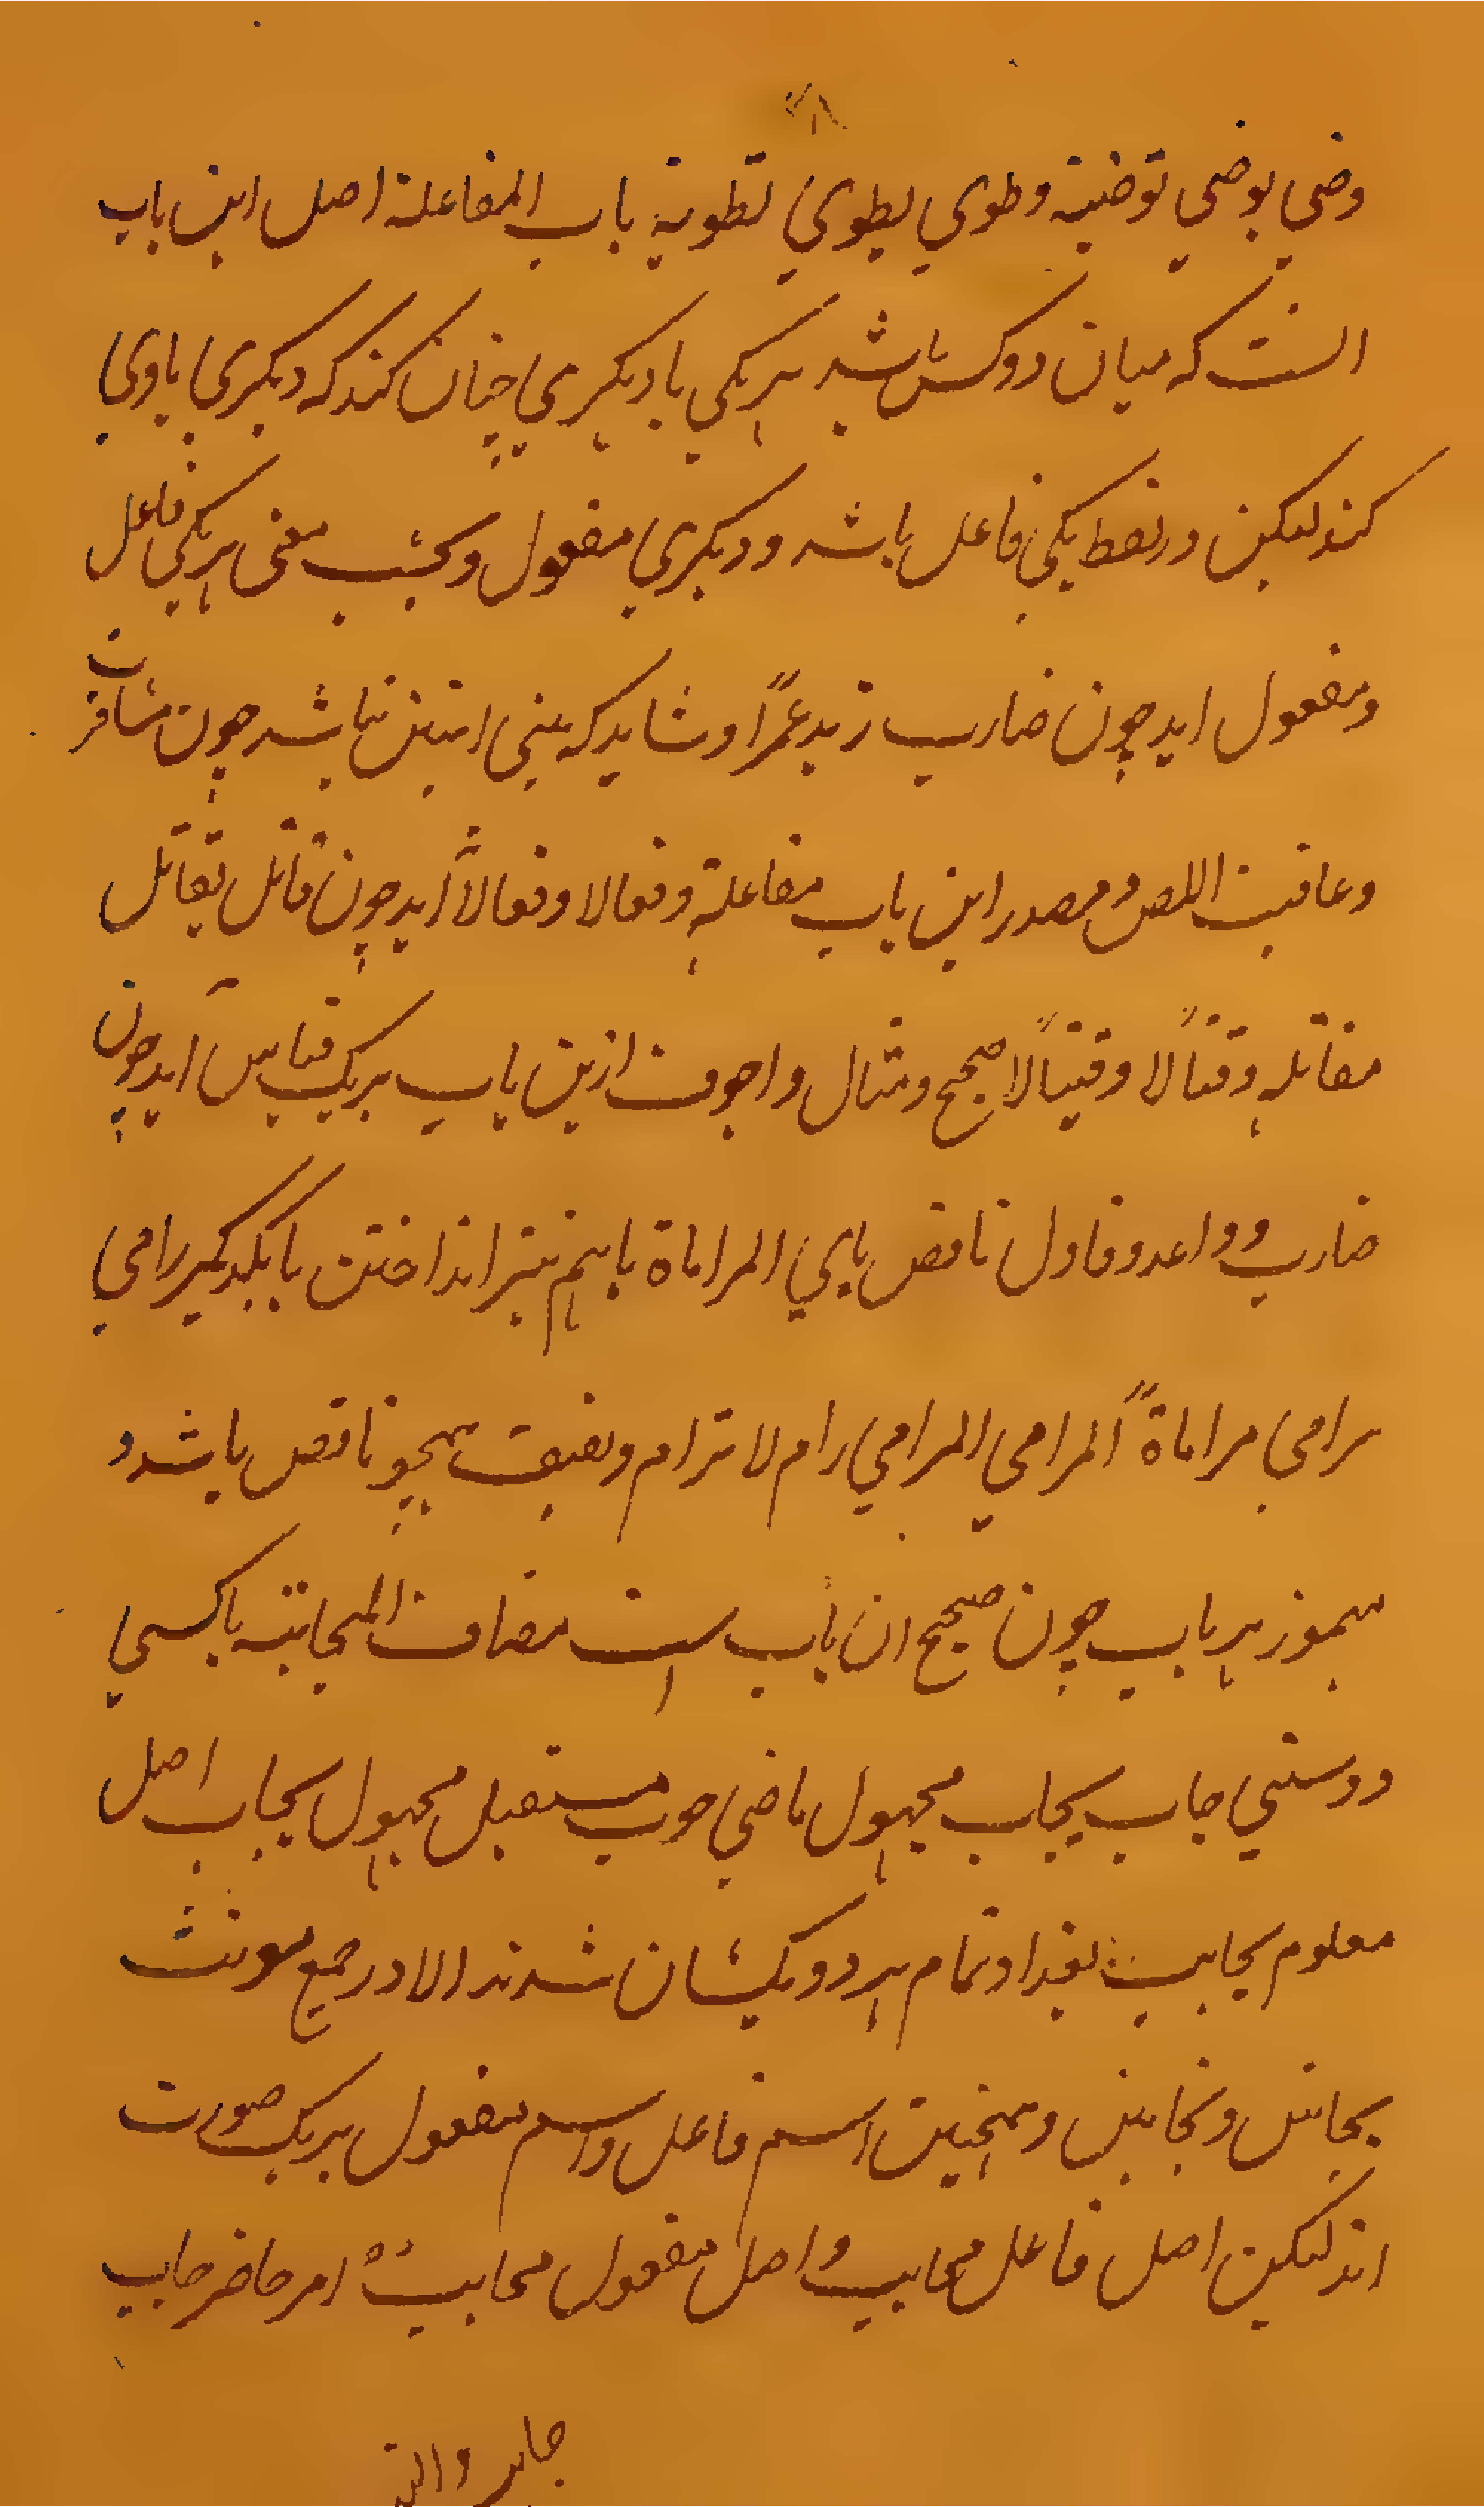 وضي يوضي توضية وطوي يطوي تطوية باب المفاعلة اصل اين باب
انست كه ميان دوكس باشد هريكي با ديكيري چنان كند كه ديكري باوي
كند ليكن در لفظ يكي فاعل باشد و ديكري مفعول وبحسب معنى هريكي فاعل
ومفعول ايد چون ضارب زيد عمرًا وشايد كه بين اثنين نباشد چون سافرت
وعاقبت اللص ومصدر اين باب مفاعلة وفعالا وفيعالاً ايد چون قاتل يقاتل
مقاتلة وقتالًا وقيتالًا صحيح ومثال واجوف ازين باب بريك قياس ايد چون
ضارب وواعد وقاول ناقص يايي المراماة باهم تير انداختن با يكديكر رامي
يرامي مراماةً المرامي المرامي رام لا ترام ولفيف همچو ناقص باشد و
مهموز هر باب چون صحيح ان باب است مضاف المحابة با كسي
دوستي حاب يحاب مجهول ماضي حوب مستقبل مجهول يحاب اصل
معلوم يحابب بغدادتمام هر دو يكسان شدند الا در جمع مونث
يحاببن ويحاببن وهمچنين اسم فاعل واسم مفعول بريك صورت
اند ليكن اصل فاعل محابب واصل مفعول محابب امر حاضر حاب